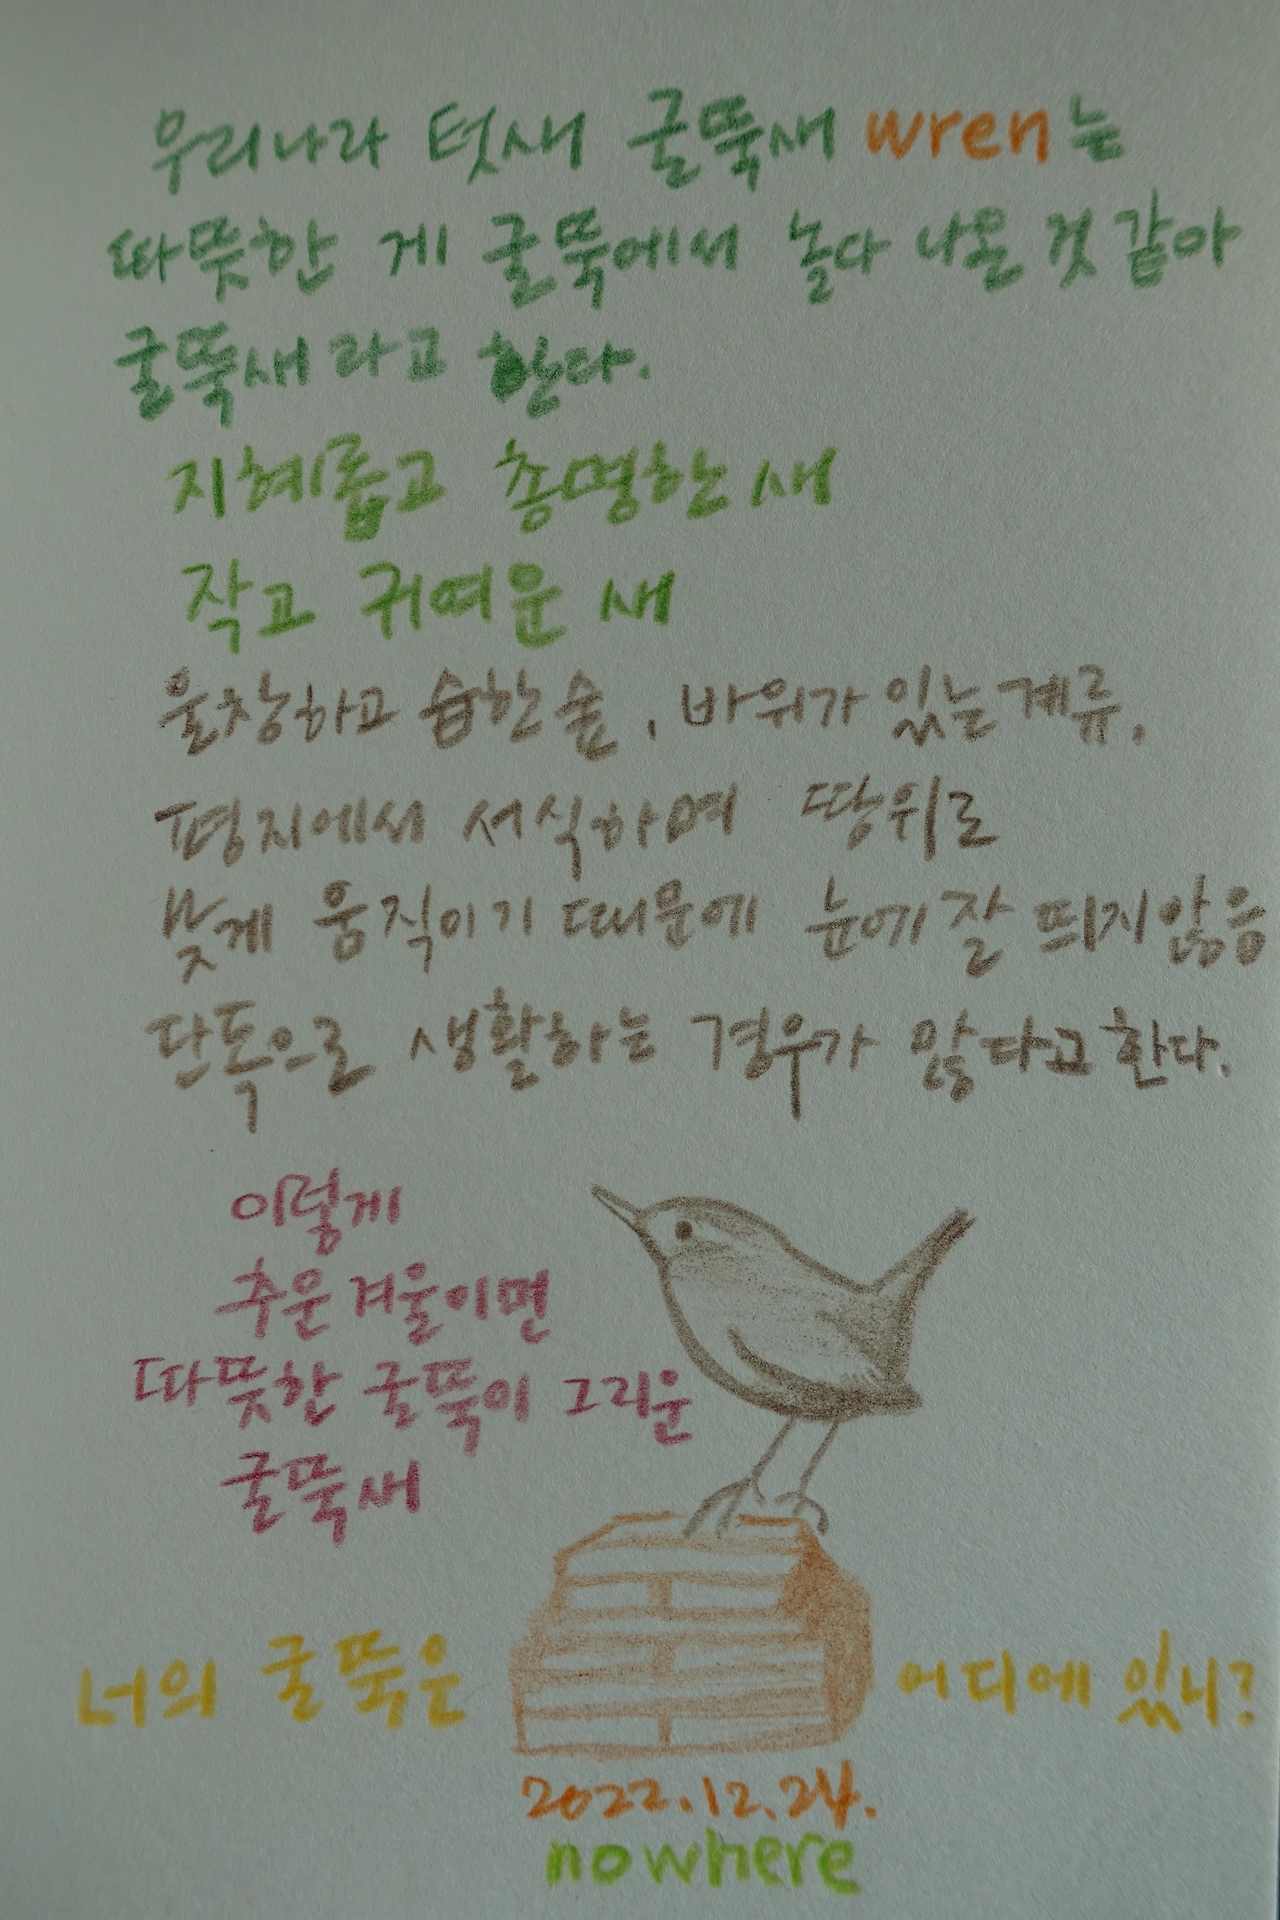 우리나라 텃새 굴뚝새 wren는
따뜻한 게 굴뚝에서 놀다 나온 것 같아
굴뚝새라고 한다.
지혜롭고 총명한 새
작고 귀여운 새
울창하고 습한 숲, 바위가 있는 계류,
평지에서 서식하며 땅위로
낮게 움직이기 때문에 눈에 잘 띄지 않음
단독으로 생활하는 경우가 많다고 한다.
이렇게
추운 겨울이면
따뜻한 굴뚝이 그리운
굴뚝새
너의 굴뚝은 어디에 있니?
2022.12.24.
nowhere